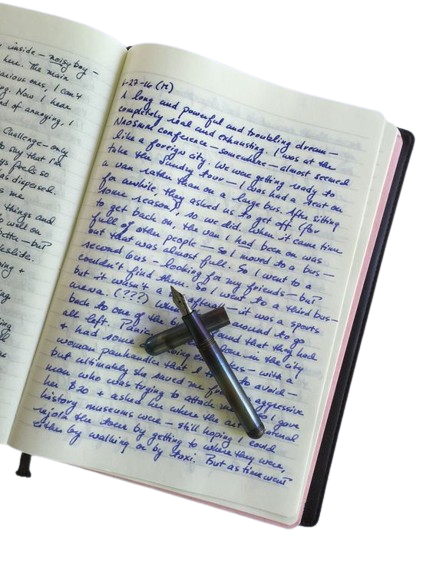 inside - noisy boy -
here. The main
various ones, I can't
Now I hear
kind of annoying, I
Challenge - only
to say that I'm
feels so
disposed
me
things and
will on
6-27-16 (M)
A long and powerful and troubling dream -
completely real and exhausting. I was at the
NAOSMM conference - somewhere - almost seemed
like a foreign city. We were getting ready to
take the Sunday tour - I was had a seat on
a van rather than on a large bus. After sitting
for awhile, they asked us to get off (for
some reason), so we did. When it came time
to get back on, the van I had been on was
full of other people - So I moved to a bus -
but that was almost full. So I went to a
second bus - looking for my friends - but
couldn't find them. So I went to a third bus -
but it wasn't a after all - it was a sports
arena. (???) When I around to go
back to one of the found that they had
all left. Panic alone in the city
+ had some with a
woman panhandler that I to avoid -
but ultimately she saved me aggressive
man who was trying to attack me. So I gave
her $20 + asked her where the art natural
history museums were - still hoping I could
rejoin the tour by getting to where they were,
either by walking or by taxi. But as time went